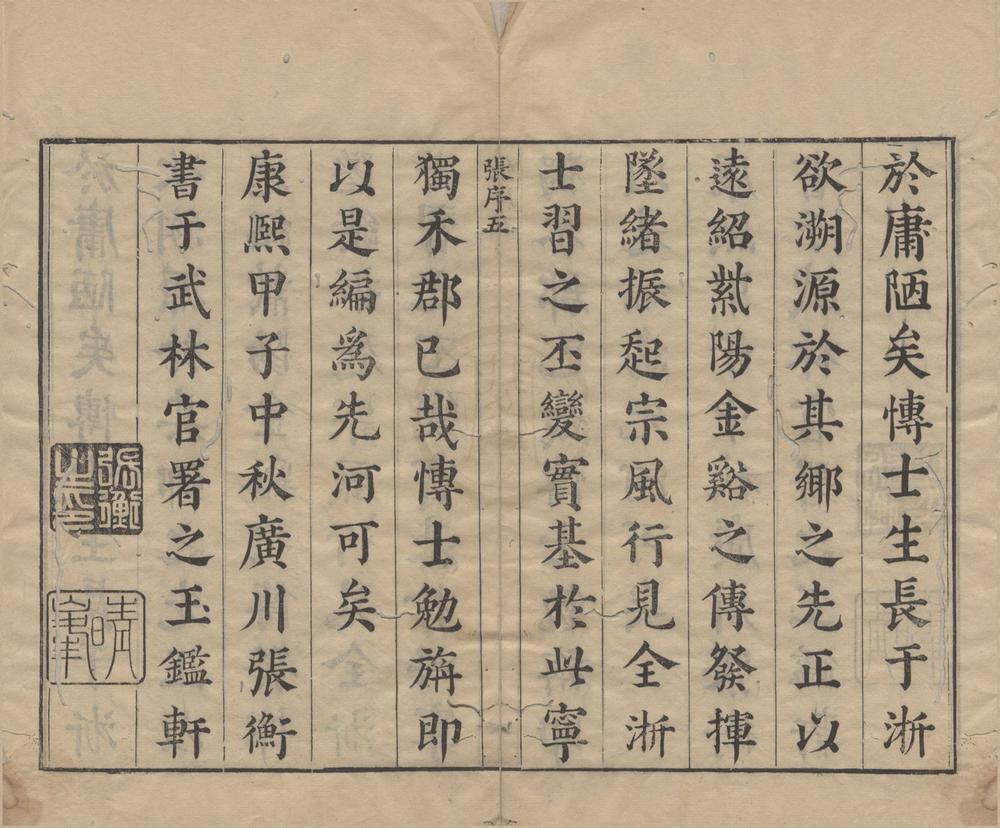 於庸陋矣博士生長于浙
欲溯源於其鄉之先正以
遠紹紫陽金谿之傳發揮
墜緒振起宗風行見全浙
士習之丕變實基於此寧
張序五
獨禾郡已哉博士勉旃即
以是編爲先河可矣
康熙甲子中秋廣川張衡
書于武林官署之玉鑑軒
張衡之印
晴峯